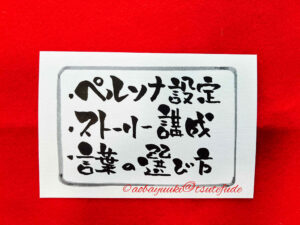 ・ペルソナ設定
・ストーリー講成
・言葉の選び方
©aobayuuki@tsutefude